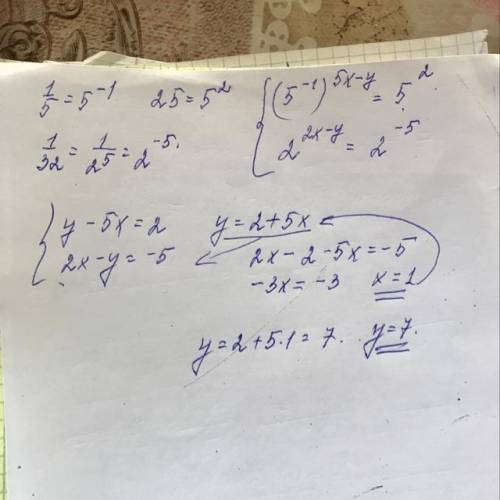 1/5 = 5^-1   25 = 5^2
1/32 = 1/2^5 = 2^-5.
{ (5^-1)^5x-y = 5^2.
2^2x-y = 2^-5
{ y - 5x = 2   y = 2 + 5x
2x - y = -5   2x - 2 - 5x = -5
-3x = -3   x = 1
y = 2 + 5·1 = 7.   y = 7.